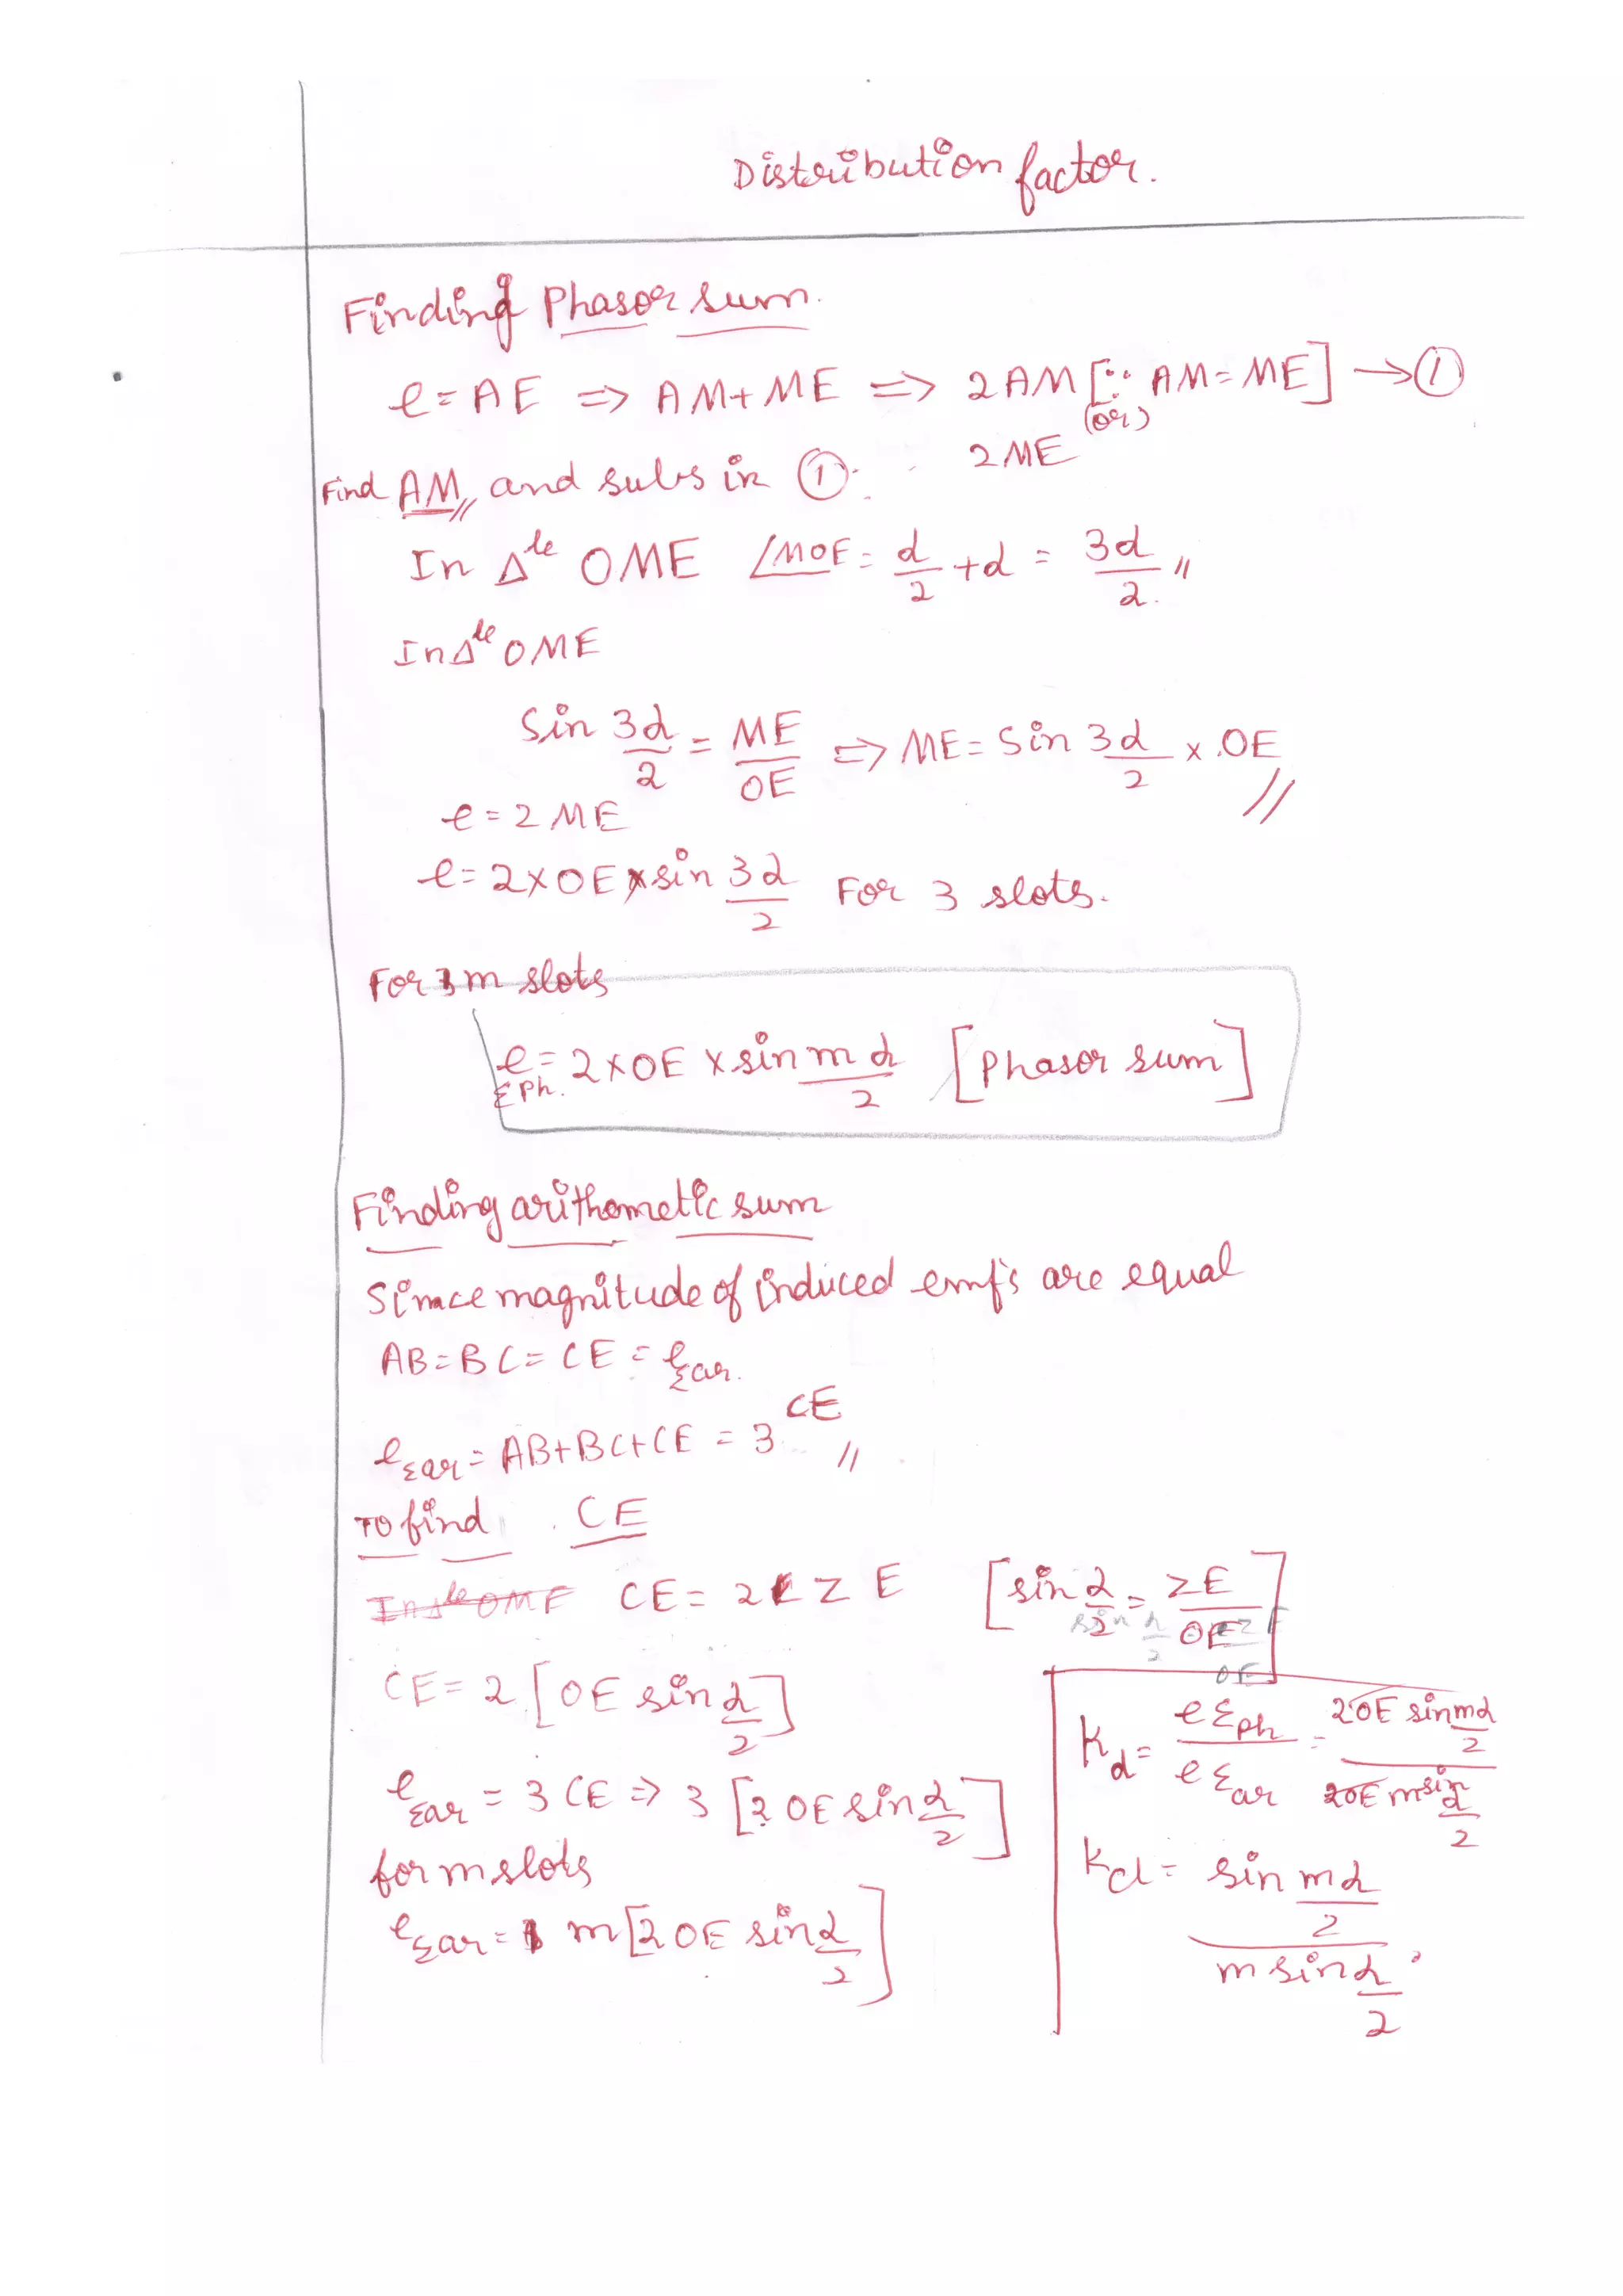 Distribution factor.
Finding Phasor sum.
e = AE => AM+ME => 2AM [∵ AM=ME] → ①
(or)
2ME
Find AM, and subs in ①.
In Δle OME ∠MOE = α/2 + α = 3α/2 //
In Δle OME
Sin 3α/2 = ME/OE => ME = Sin 3α/2 × OE //
e = 2 ME
e = 2×OE×sin 3α/2 For 3 slots.
For m slots
eΣph. = 2×OE×sin mα/2 [Phasor sum]
Finding arithometic sum
Simce magnitude of induced emf's are equal
AB = BC = CE = eΣar.
eΣar = AB+BC+CE = 3 CE //
To find CE
In Δle OME CE = 2 Z E [sin α/2 = ZE/OE]
sin α/2
OE
CE = 2 [OE sin α/2]
eΣar = 3 CE => 3 [2 OE sin α/2]
for m slots
eΣar = m [2 OE sin α/2]
Kd = eΣph/eΣar = 2OE sin mα/2 / 2OE m sin α/2
Kd = sin mα/2 / m sin α/2.